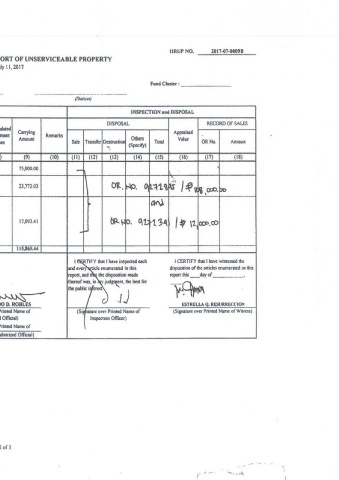 IIRUP NO. 2017-07-0009B
ORT OF UNSERVICEABLE PROPERTY
ly 11, 2017
Fund Cluster :
(Station)
INSPECTION and DISPOSAL
DISPOSAL RECORD OF SALES
Carrying Amount Remarks Sale Transfer Destruction Others (Specify) Total Appraised Value OR No. Amount
(9) (10) (11) (12) (13) (14) (15) (16) (17) (18)
75,000.00
23,772.03 OR. NO.
and
17,093.41 OR NO. / ₱ 12,000.00
115,865.44
I CERTIFY that I have inspected each
and every article enumerated in this
report, and that the disposition made
thereof was, in my judgment, the best for
the public interest.
I CERTIFY that I have witnessed the
disposition of the articles enumerated on this
report this ____ day of
O D. ROBLES
Printed Name of
Official)
Printed Name of
uthorized Official)
(Signature over Printed Name of
Inspection Officer)
ESTRELLA Q. RESURRECCION
(Signature over Printed Name of Witness)
of 3